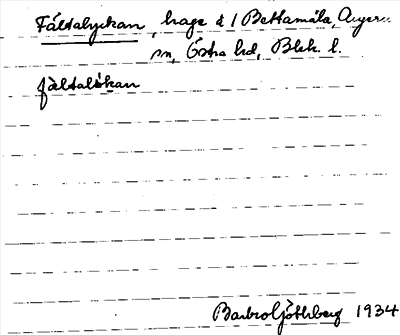 Fältalyckan, hage å 1 Bettamåla, Augeru
sn, Östra hd, Blek. l.
fàltalökan
Barbro Götlberg 1934